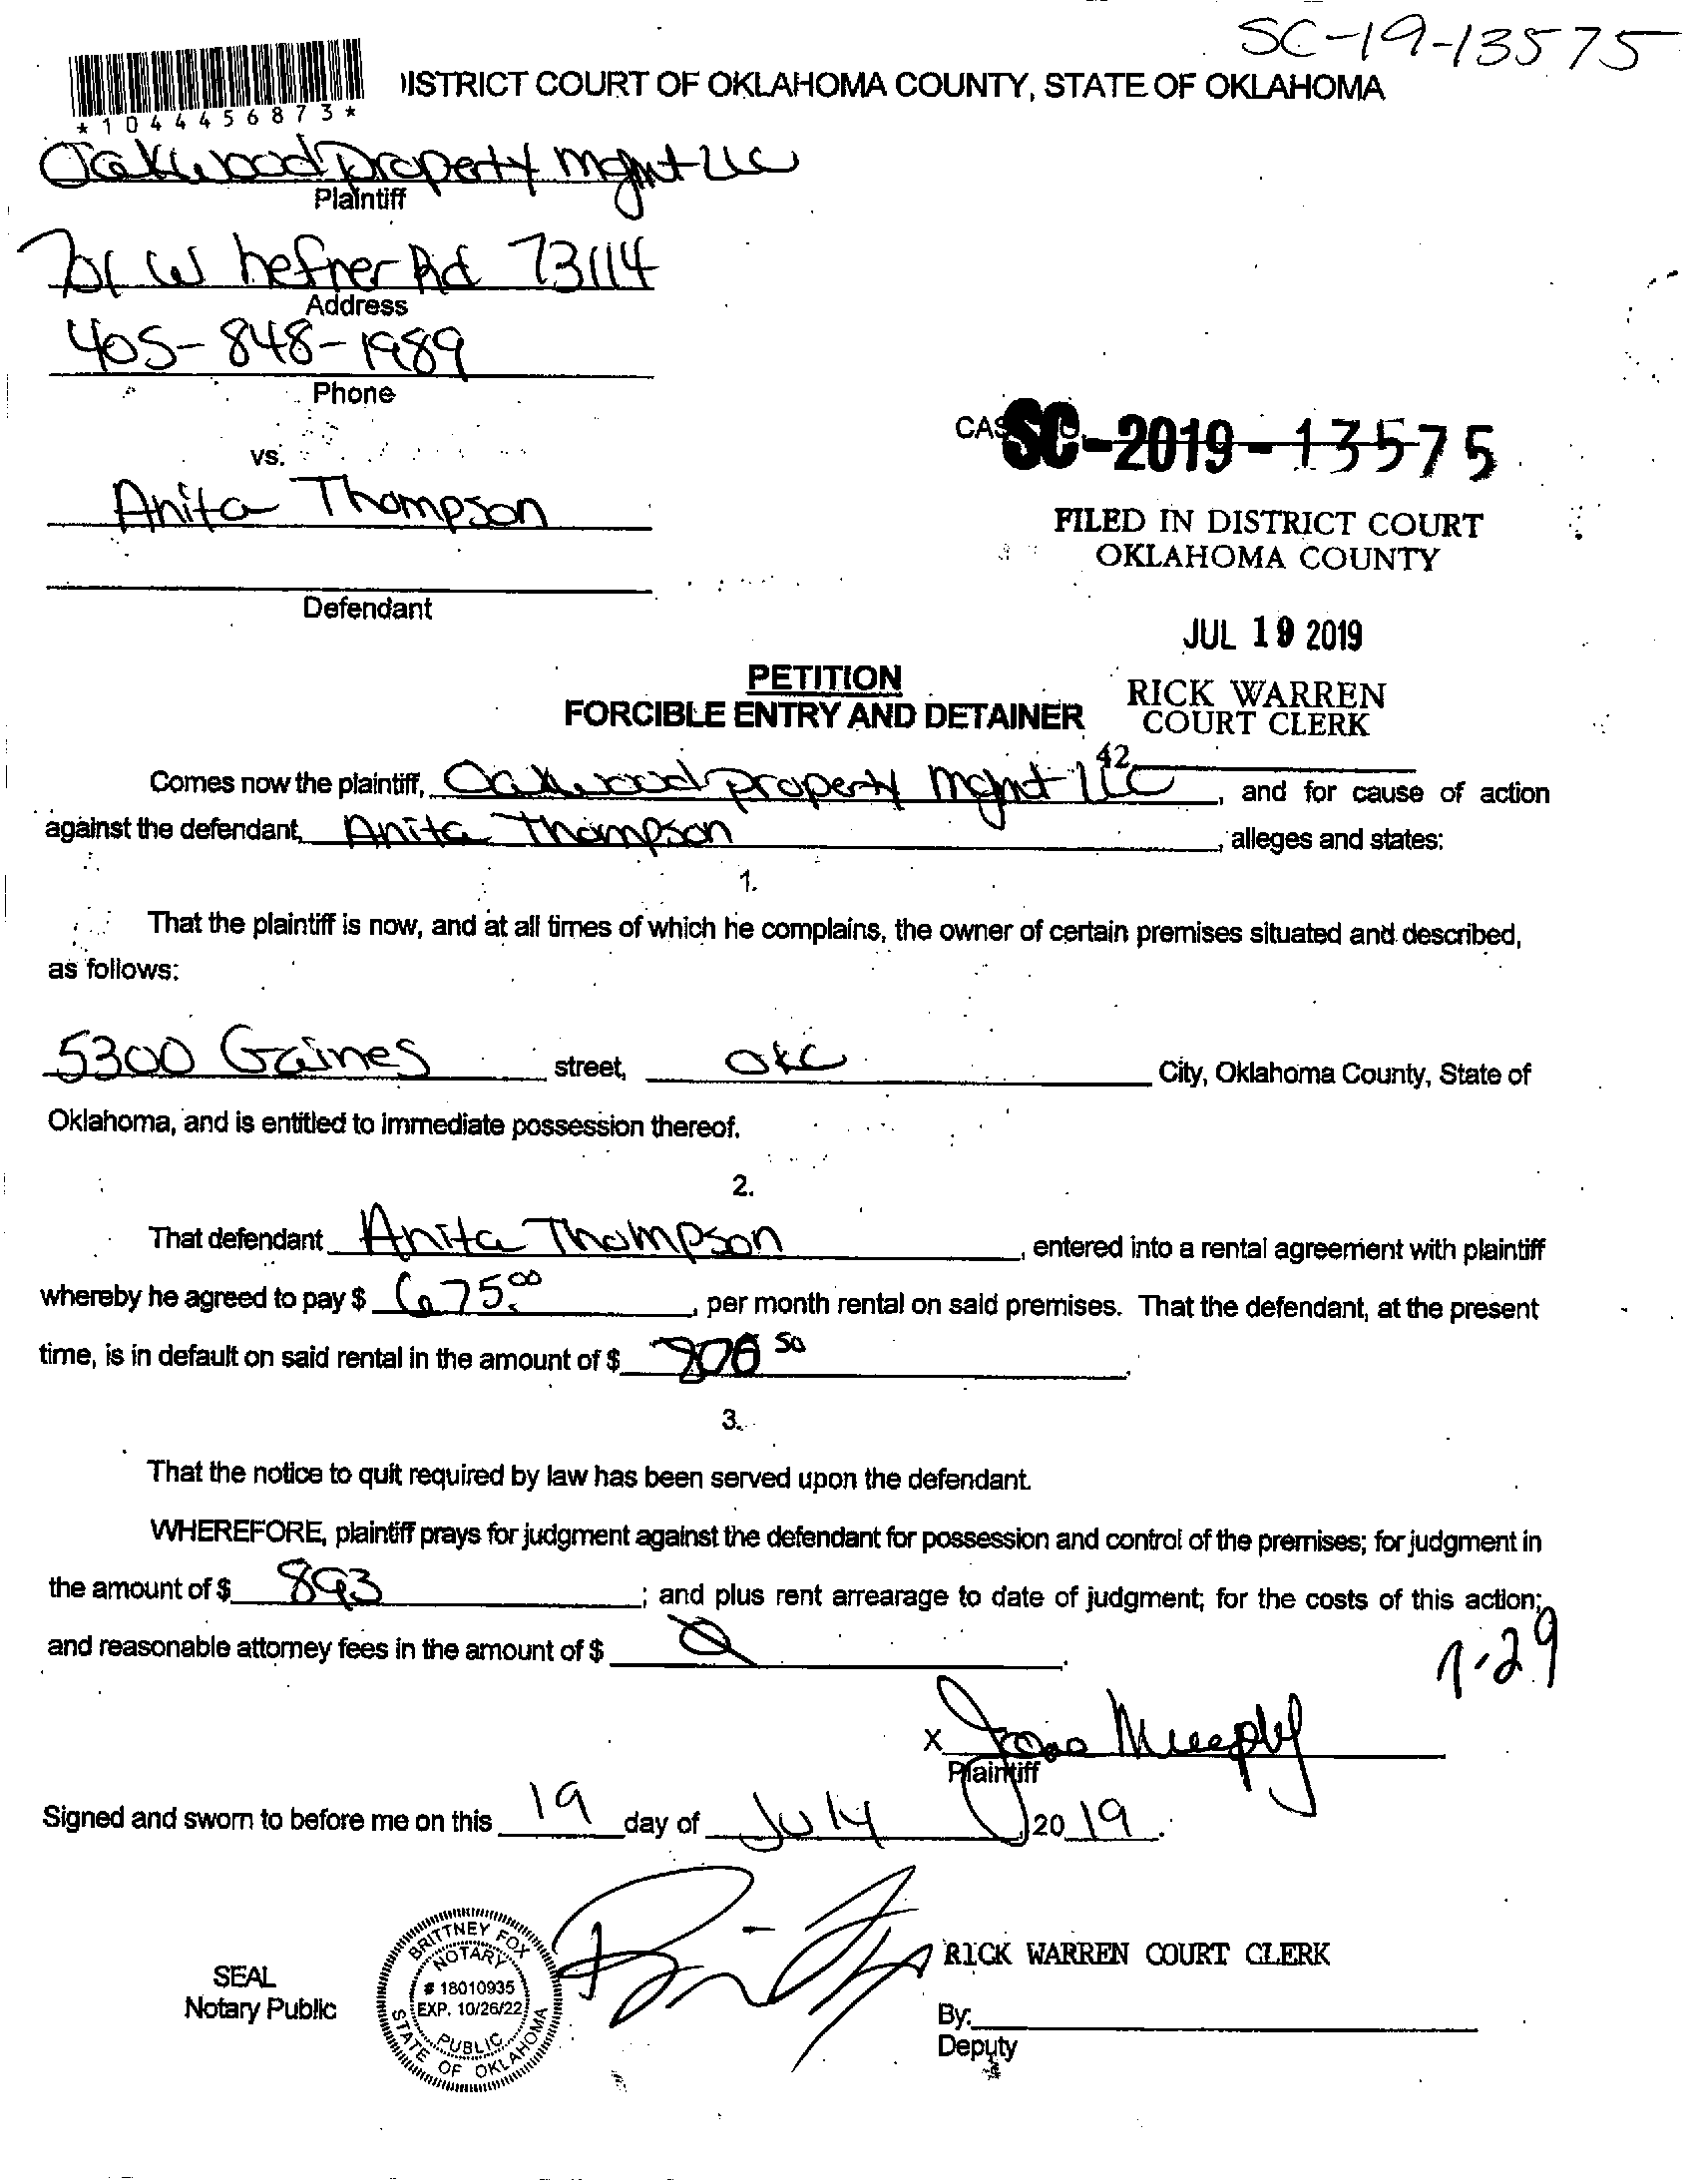 SC-19-13575
*1044456873*
ISTRICT COURT OF OKLAHOMA COUNTY, STATE OF OKLAHOMA
Oakwood Property Mgmt LLC
Plaintiff
701 W hefner Rd 73114
Address
405-848-1989
Phone
CAS SC-2019-13575
vs.
Anita Thompson
FILED IN DISTRICT COURT
OKLAHOMA COUNTY
Defendant
JUL 19 2019
PETITION
FORCIBLE ENTRY AND DETAINER
RICK WARREN
COURT CLERK
42
Comes now the plaintiff, Oakwood property Mgmt LLC, and for cause of action
against the defendant, Anita Thompson, alleges and states:
1.
That the plaintiff is now, and at all times of which he complains, the owner of certain premises situated and described,
as follows:
5300 Gaines street, OKC City, Oklahoma County, State of
Oklahoma, and is entitled to immediate possession thereof.
2.
That defendant Anita Thompson, entered into a rental agreement with plaintiff
whereby he agreed to pay $ 675.00, per month rental on said premises. That the defendant, at the present
time, is in default on said rental in the amount of $ 50.
3.
That the notice to quit required by law has been served upon the defendant.
WHEREFORE, plaintiff prays for judgment against the defendant for possession and control of the premises; for judgment in
the amount of $ 893; and plus rent arrearage to date of judgment; for the costs of this action;
and reasonable attorney fees in the amount of $ Ø.
7-29
X Murphy
Plaintiff
Signed and sworn to before me on this 19 day of July 2019.
BRITTNEY FOX
NOTARY
# 18010935
EXP. 10/26/22
PUBLIC
STATE OF OKLAHOMA
SEAL
Notary Public
RICK WARREN COURT CLERK
By:
Deputy